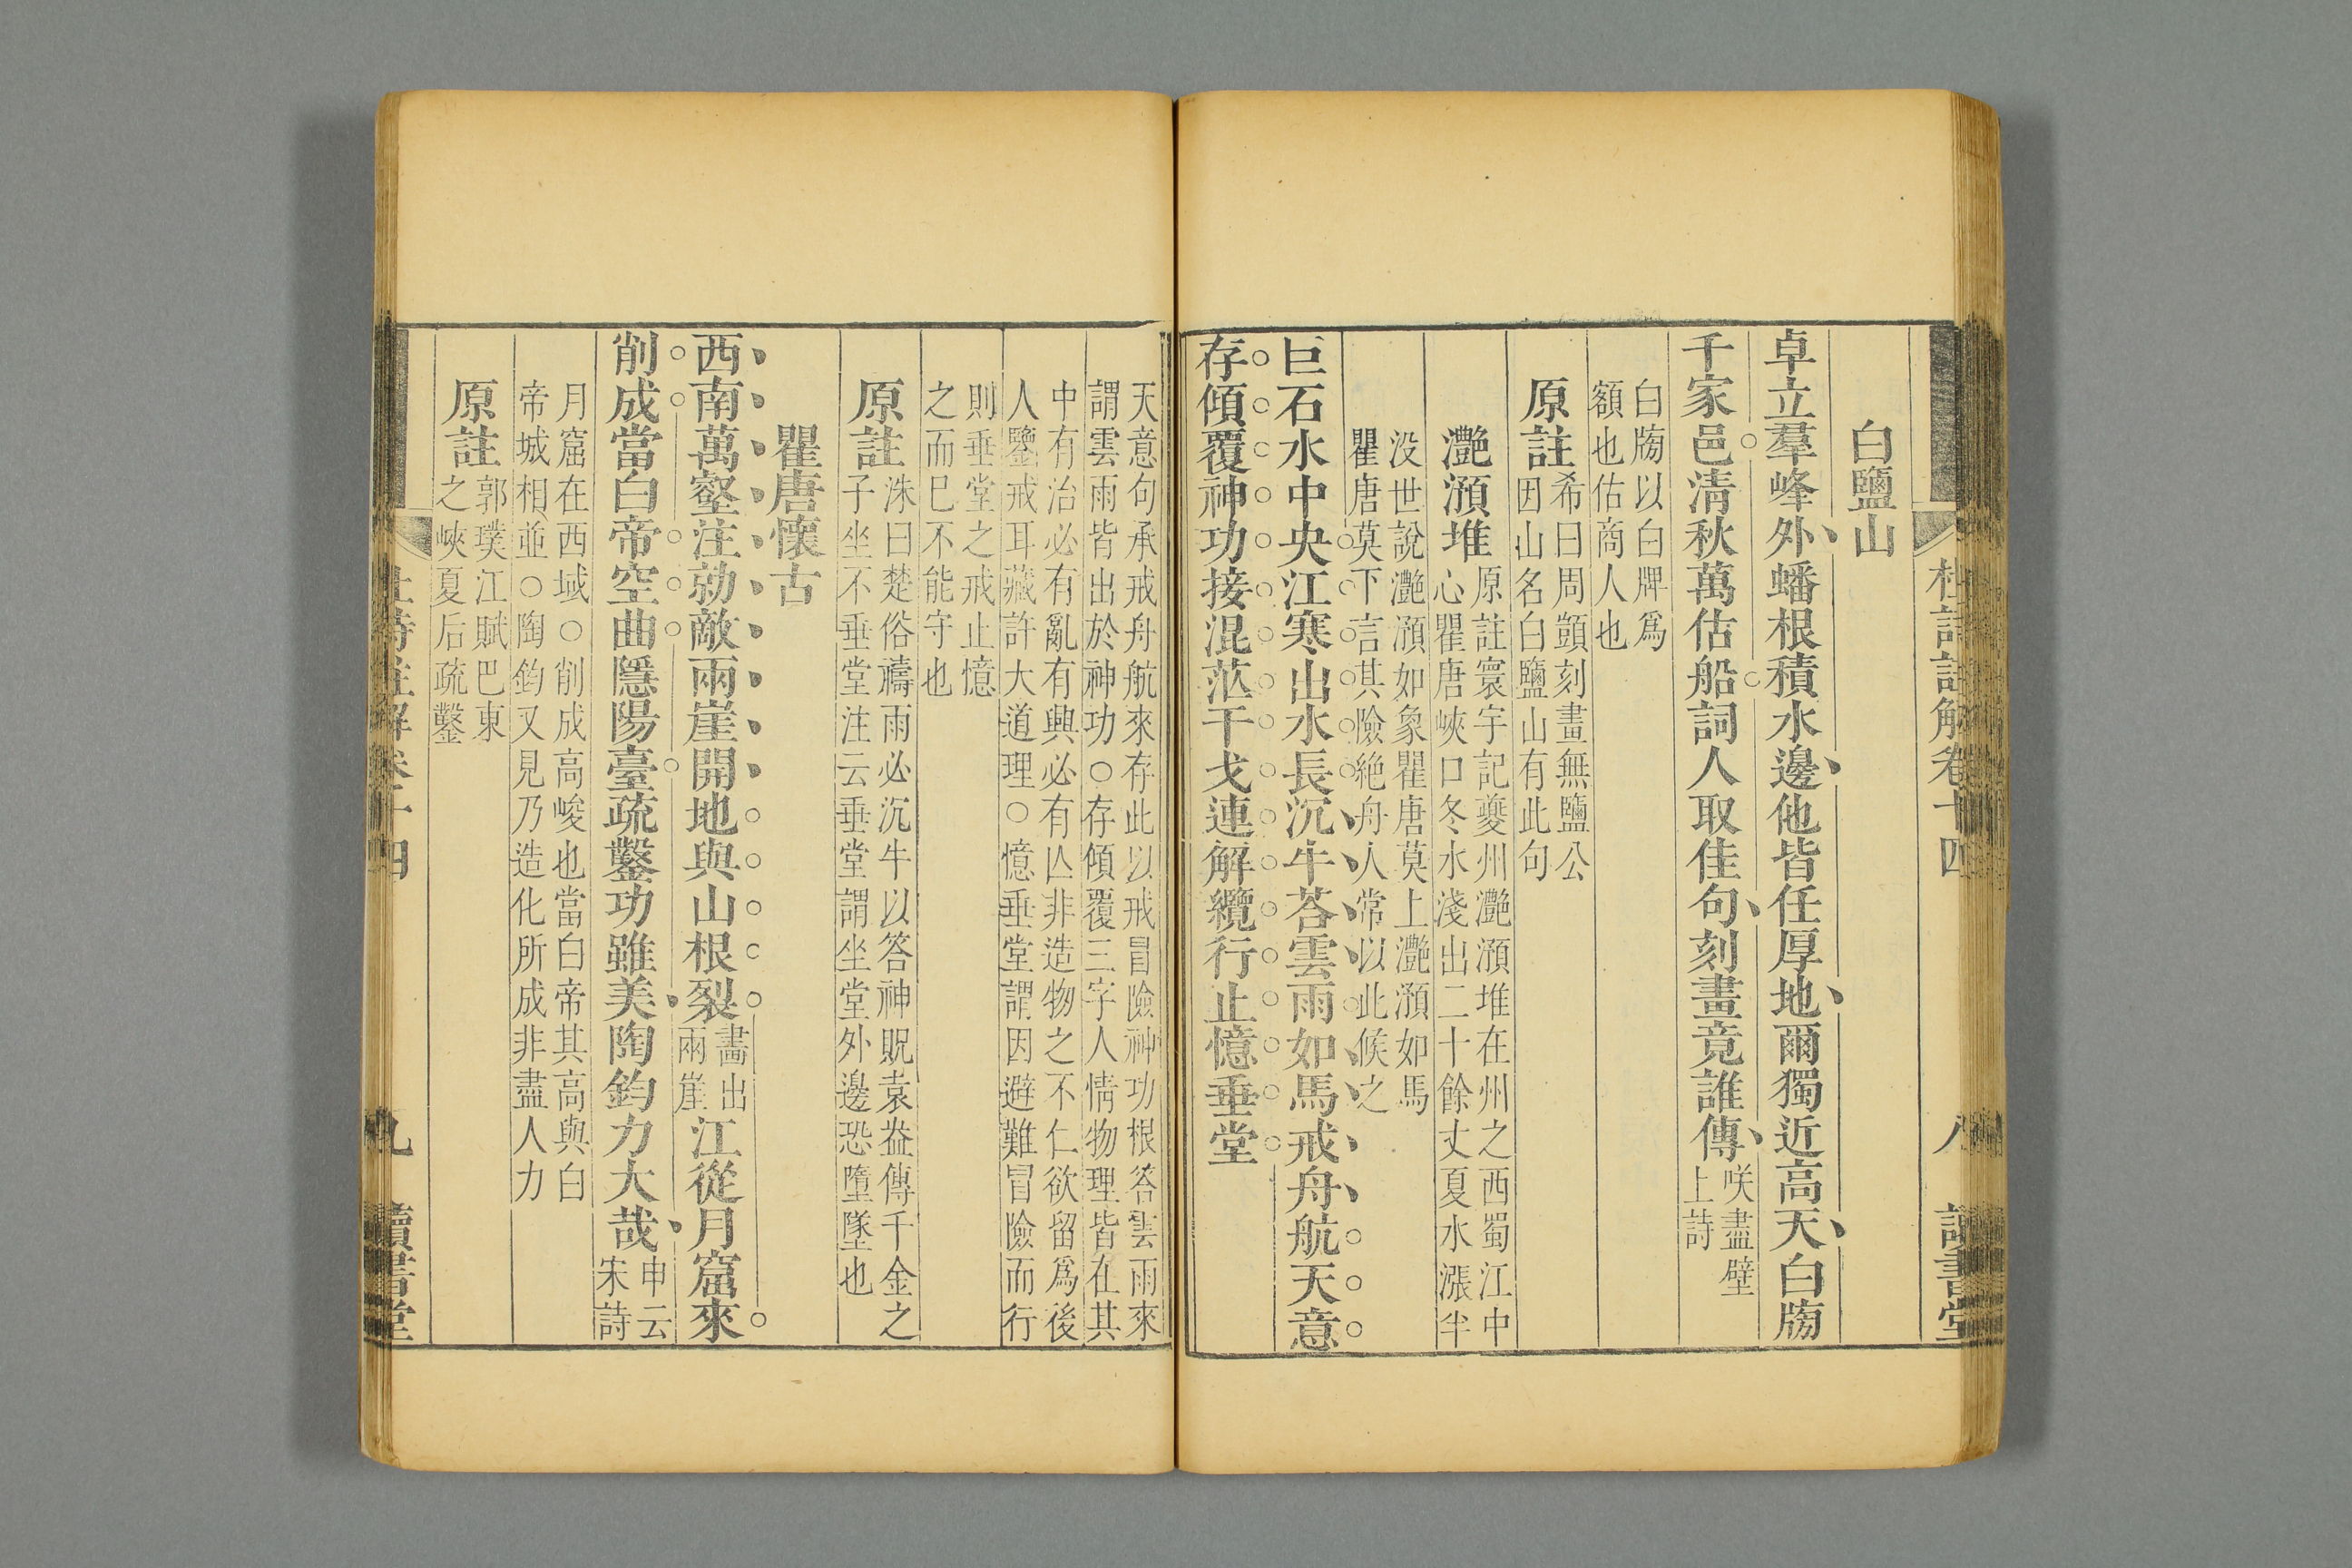 白鹽山
卓立羣峰外蟠根積水邊他皆任厚地爾獨近高天白牓
千家邑清秋萬估船詞人取佳句刻畫竟誰傳
咲盡壁
上詩
白牓以白牌爲
額也估商人也
原註
希曰周顗刻畫無鹽公
因山名白鹽山有此句
灔澦堆
原註寰宇記夔州灔澦堆在州之西蜀江中
心瞿唐峽口冬水淺出二十餘丈夏水漲半
没世說灔澦如象瞿唐莫上灔澦如馬
瞿唐莫下言其險絶舟人常以此候之
巨石水中央江寒出水長沉牛荅雲雨如馬戒舟航天意
存傾覆神功接混茫干戈連解纜行止憶垂堂
杜詩註解卷十四
八
讀書堂
天意句承戒舟航來存此以戒冒險神功根荅雲雨來
謂雲雨皆出於神功○存傾覆三字人情物理皆在其
中有治必有亂有興必有亾非造物之不仁欲留爲後
人鑒戒耳藏許大道理○憶垂堂謂因避難冒險而行
則垂堂之戒止憶
之而巳不能守也
原註
洙曰楚俗禱雨必沉牛以答神貺袁盎傳千金之
子坐不垂堂注云垂堂謂坐堂外邊恐墮墜也
瞿唐懷古
西南萬壑注勍敵兩崖開地與山根裂
畵出
兩崖
江從月窟來
削成當白帝空曲隱陽臺疏鑿功雖美陶鈞力大哉
申云
宋詩
月窟在西域○削成高峻也當白帝其高與白
帝城相並○陶鈞又見乃造化所成非盡人力
原註
郭璞江賦巴東
之峽夏后疏鑿
杜詩註解卷十四
九
讀書堂